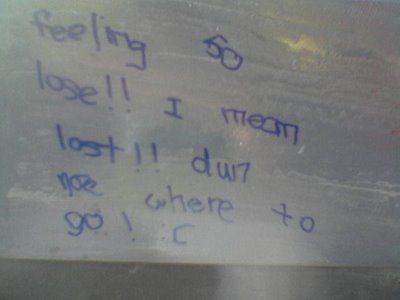 feeling so
lose!! I mean
lost!! dun
noe where to
go! :(